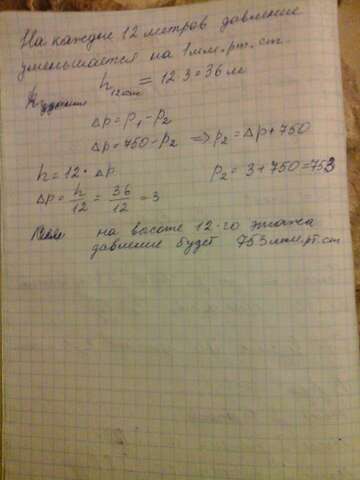 На каждые 12 метров давление
уменьшается на 1мм.рт.ст.
h 12эт = 12·3=36м
Δp=p₁-p₂
Δp=750-p₂ ⇒ p₂=Δp+750
h=12·Δp p₂=3+750=753
Δp=h/12=36/12=3
на высоте 12-го этажа
давление будет 753мм.рт.ст